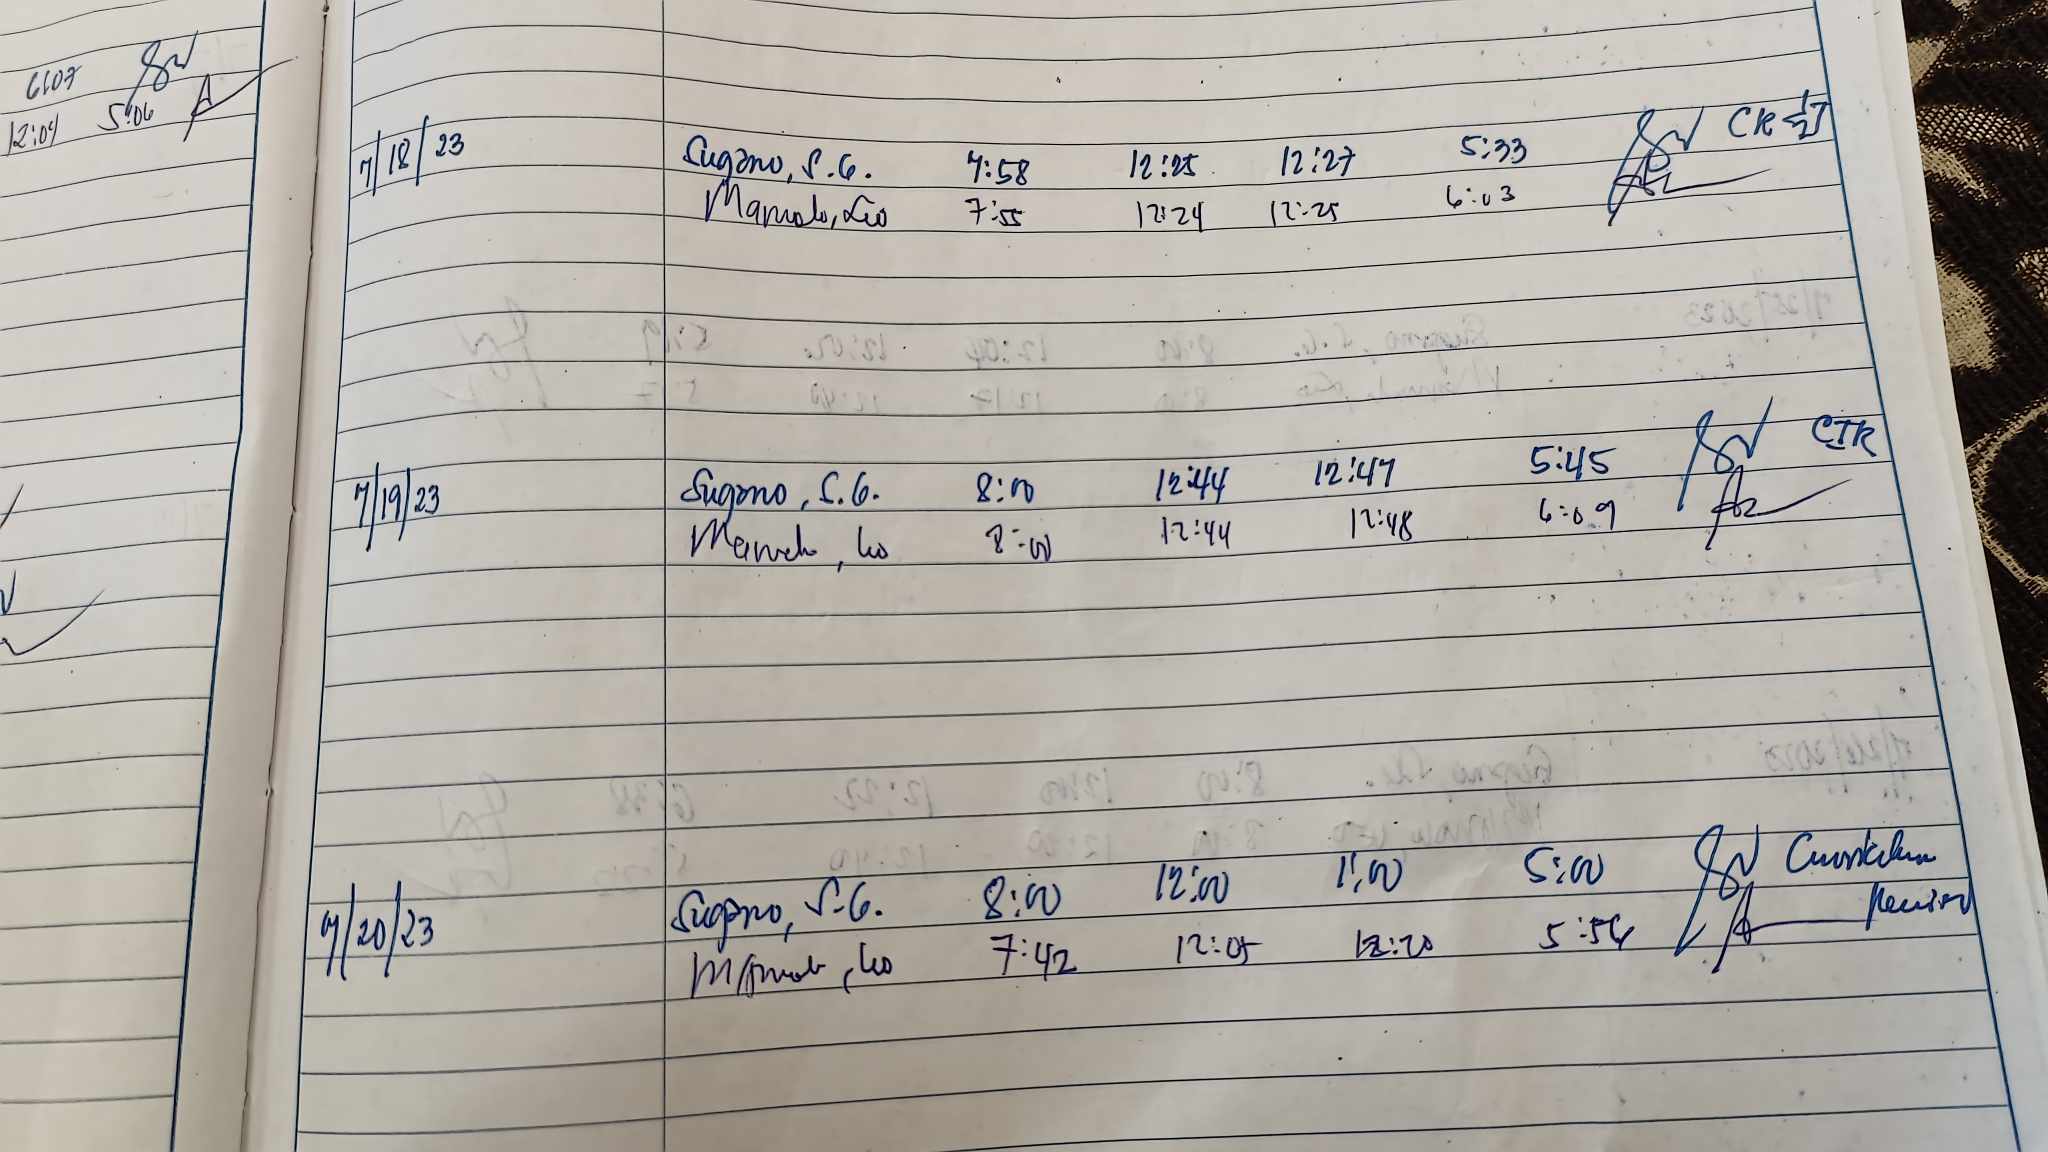 6:07
12:04 5:06
7/18/23 Sugano, S.G. 7:58 12:25 12:27 5:33 CR
Mamolo, Leo 7:55 12:24 12:25 6:03
7/19/23 Sugano, S.G. 8:00 12:44 12:47 5:45 CTR
Mamolo, Leo 8:00 12:44 12:48 6:09
7/20/23 Sugano, S.G. 8:00 12:00 1:00 5:00 Curriculum
Mamolo, Leo 7:42 12:05 12:20 5:56